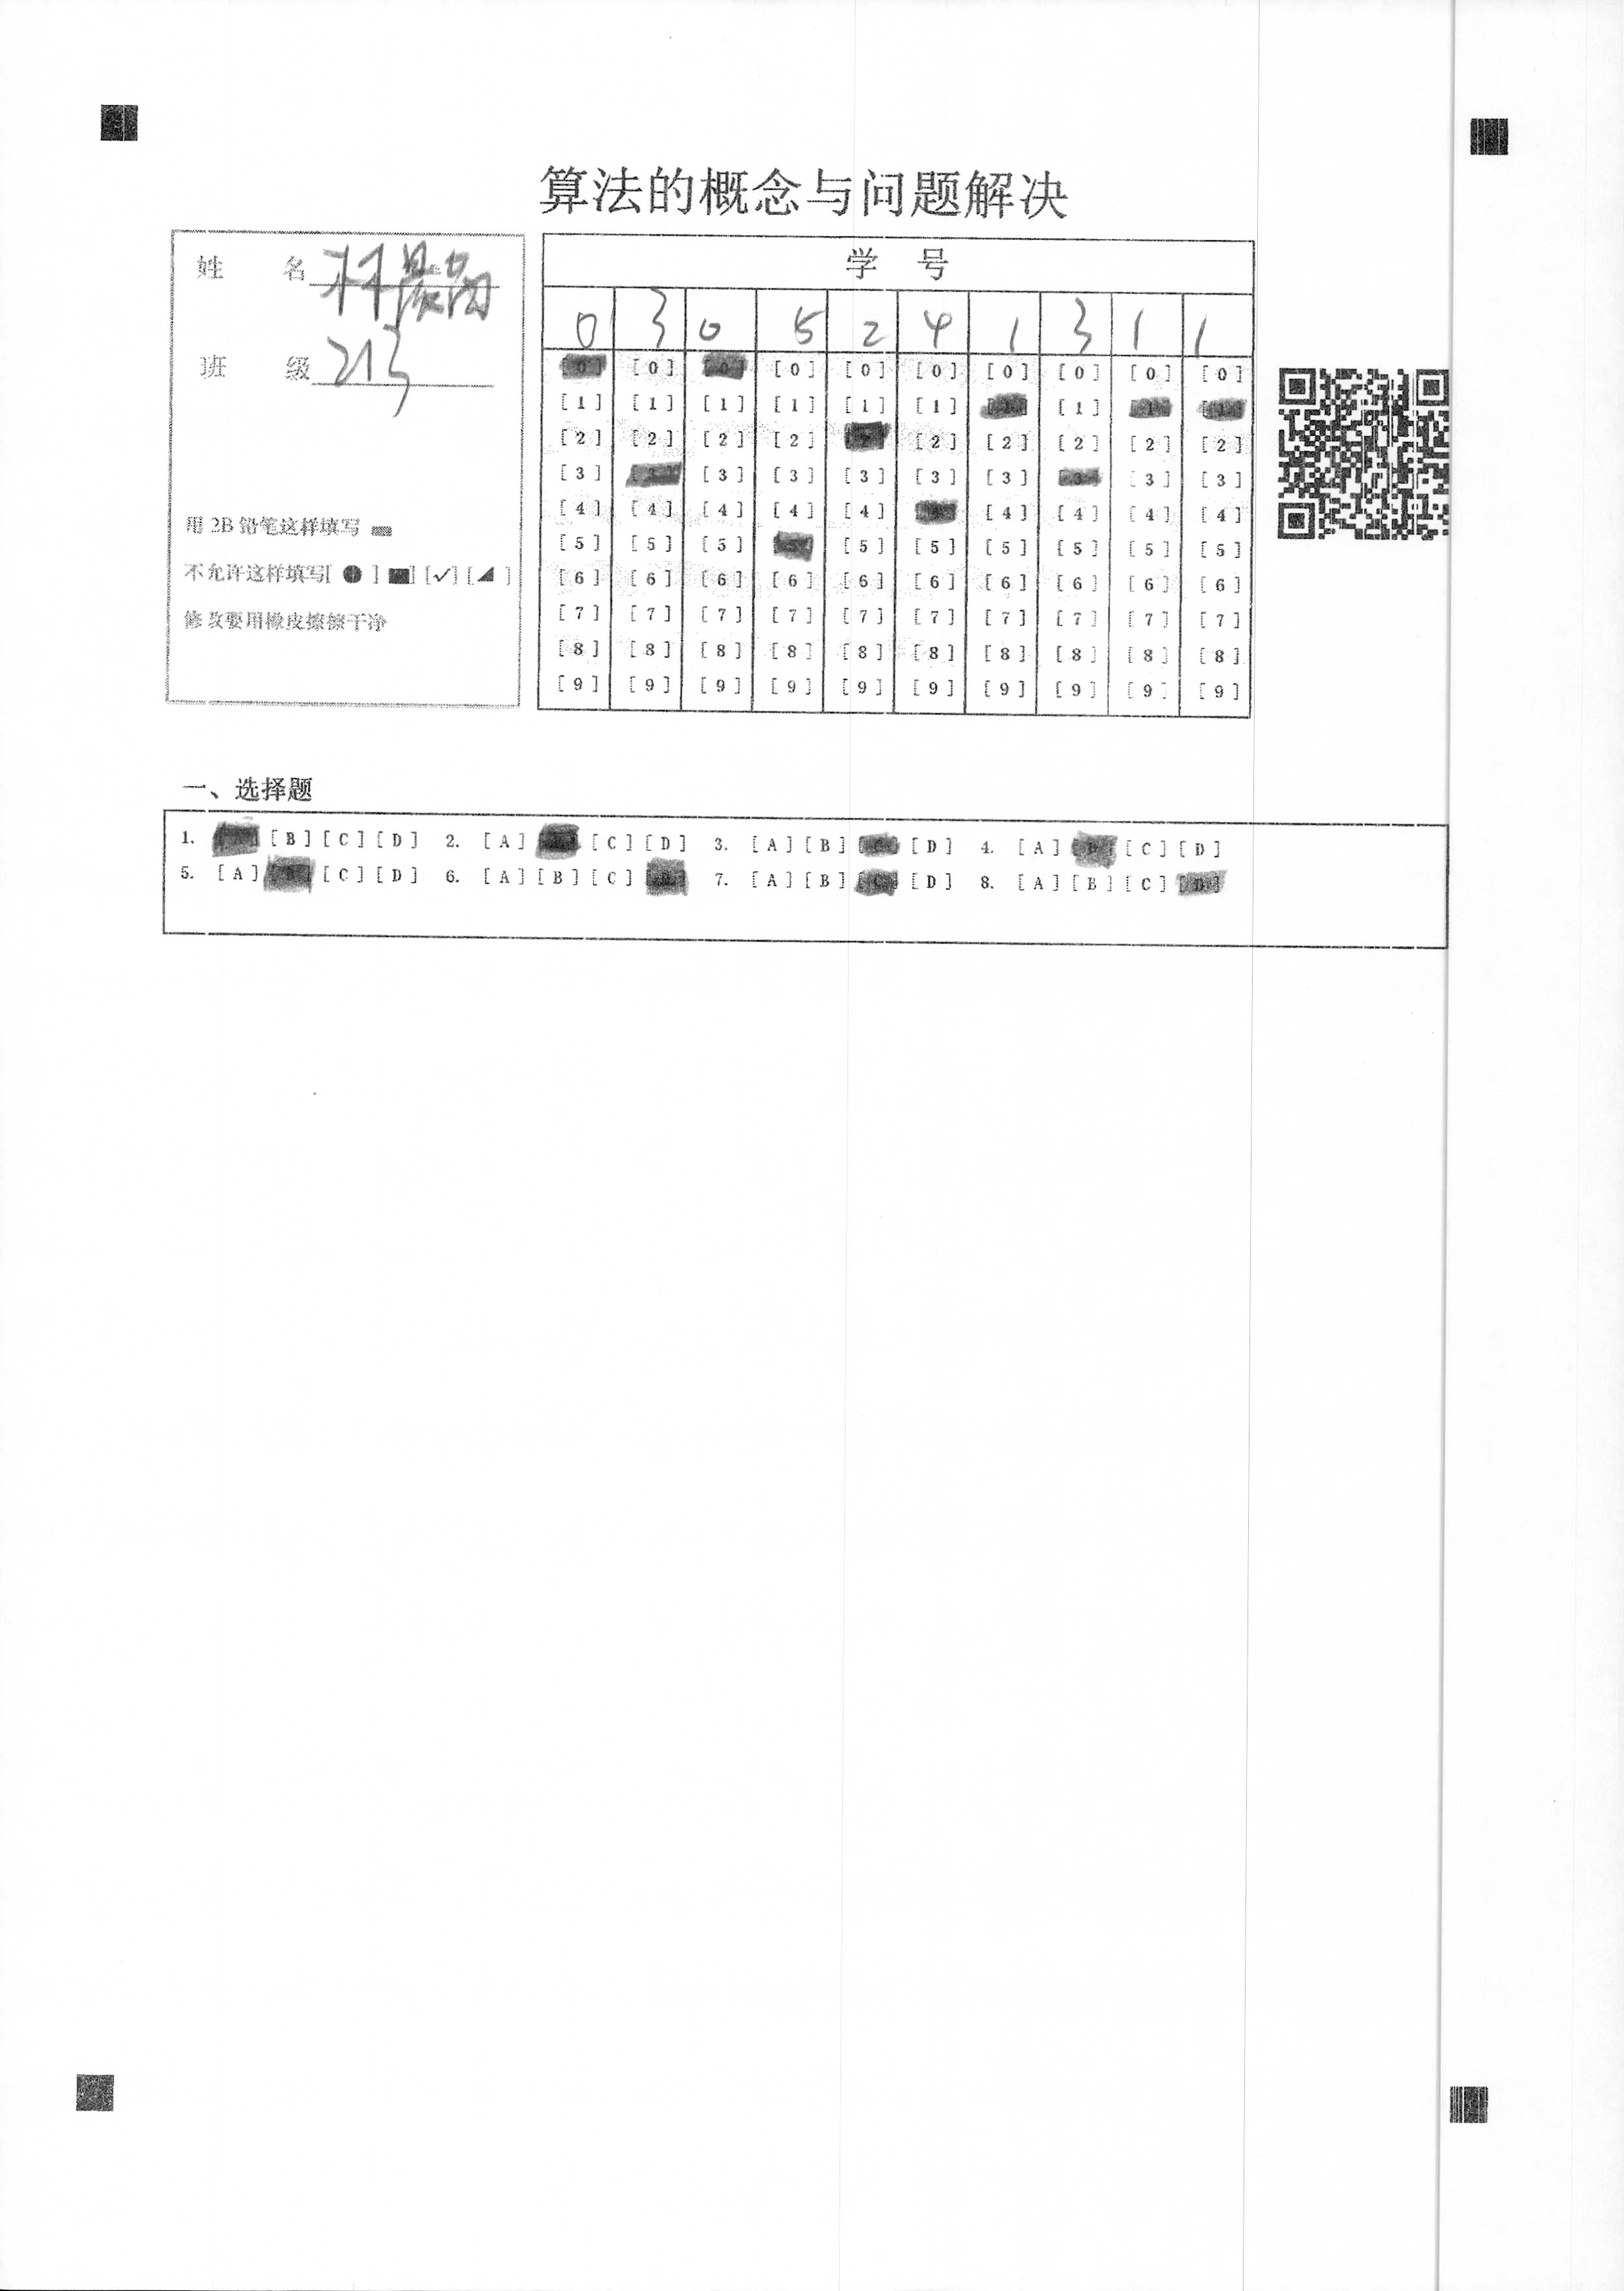 算法的概念与问题解决
姓 名 林
班 级 213
用 2B 铅笔这样填写
不允许这样填写[ ● ] ■] [✓] [◢ ]
修改要用橡皮擦擦干净
学 号
0 3 0 5 2 4 1 3 1 1
[0] [0] [0] [0] [0] [0] [0] [0] [0] [0]
[1] [1] [1] [1] [1] [1] [1] [1] [1] [1]
[2] [2] [2] [2] [2] [2] [2] [2] [2]
[3] [3] [3] [3] [3] [3] [3] [3] [3]
[4] [4] [4] [4] [4] [4] [4] [4] [4]
[5] [5] [5] [5] [5] [5] [5] [5] [5]
[6] [6] [6] [6] [6] [6] [6] [6] [6] [6]
[7] [7] [7] [7] [7] [7] [7] [7] [7] [7]
[8] [8] [8] [8] [8] [8] [8] [8] [8] [8]
[9] [9] [9] [9] [9] [9] [9] [9] [9] [9]
一、选择题
1. [B] [C] [D] 2. [A] [C] [D] 3. [A] [B] [D] 4. [A] [C] [D]
5. [A] [C] [D] 6. [A] [B] [C] 7. [A] [B] [D] 8. [A] [B] [C] [D]